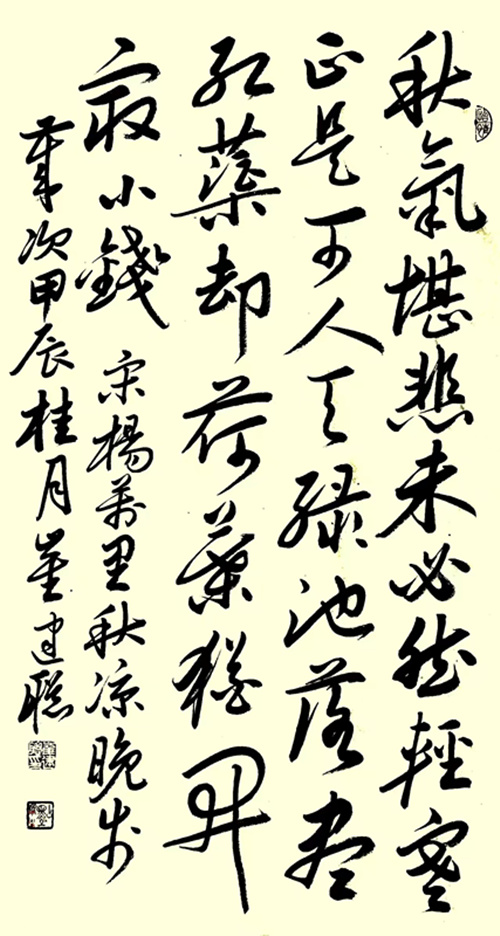 秋氣堪悲未必然輕寒
正是可人天緑池落盡
紅蕖却荷葉猶開
最小錢 宋楊萬里秋凉晚步
歲次甲辰桂月建聰